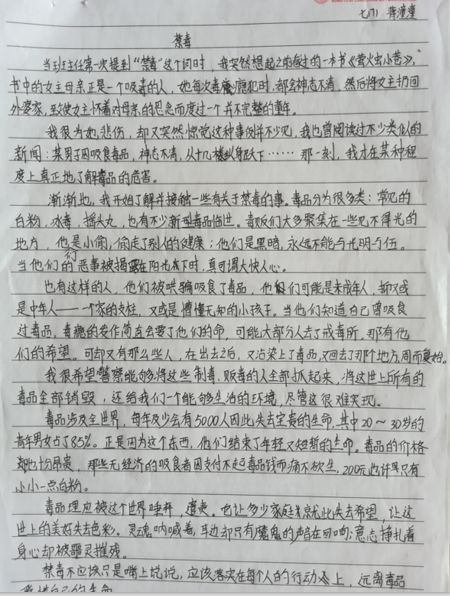 七(7) 蒋
禁毒
当班主任第一次提到“禁毒”这个词时，我突然想起之前看过的一本书《萤火虫小巷》，
书中的女主母亲正是一个吸毒的人，她每次毒瘾犯时，都会神志不清，然后将女主扔回
外婆家，致使女主怀着对母亲的思念而度过一个并不完整的童年。
我很为她悲伤，却又突然惊觉这种事例并不少见，我也曾阅读过不少类似的
新闻：某男子因吸食毒品，神志不清，从十几楼纵身跃下……那一刻，我才在某种程
度上真正地了解毒品的危害。
渐渐地，我开始了解并接触一些有关于禁毒的事。毒品分为很多类：常见的
白粉，冰毒，摇头丸，也有不少新型毒品临世。毒贩们大多聚集在一些见不得光的
地方，他是小偷，偷走了别人的健康；他们是黑暗，永远不能与光明为伍。
当他们的恶事被揭露在阳光底下时，真可谓大快人心。
也有这样的人，他们被哄骗吸食了毒品，他们可能是未成年人，却又或
是中年人——一个家的支柱，又或是懵懂无知的小孩子。当他们知道自己曾吸食
过毒品，毒瘾的发作简直会要了他们的命，可能大部分人去了戒毒所，那有他
们的希望。可却又有那么些人，在出去之后，又沾染上了毒品，又回去了那个地方，周而复始。
我很希望警察能够将这些制毒、贩毒的人全部抓起来，将这世上所有的
毒品全部销毁，还给我们一个能够生活的环境，尽管这很难实现。
毒品涉及全世界，每年及少会有5000人因此失去宝贵的生命，其中20～30岁的
青年男女占了85%。正是因为这个东西，他们结束了年轻又短暂的生命。毒品的价格
都也极昂贵，那些无经济的吸食者因支付不起毒品钱而痛不欲生，200元也许只有
小小一点白粉。
毒品理应被这个世界唾弃，遗走，也让多少家庭就此失去希望，让这
世上的美好失去色彩。灵魂呐喊着，耳边却只有魔鬼的声音在回响；意志挣扎着
身心却被罪灵摧残。
禁毒不应该只是嘴上说说，应该落实在每个人的行动上，远离毒品